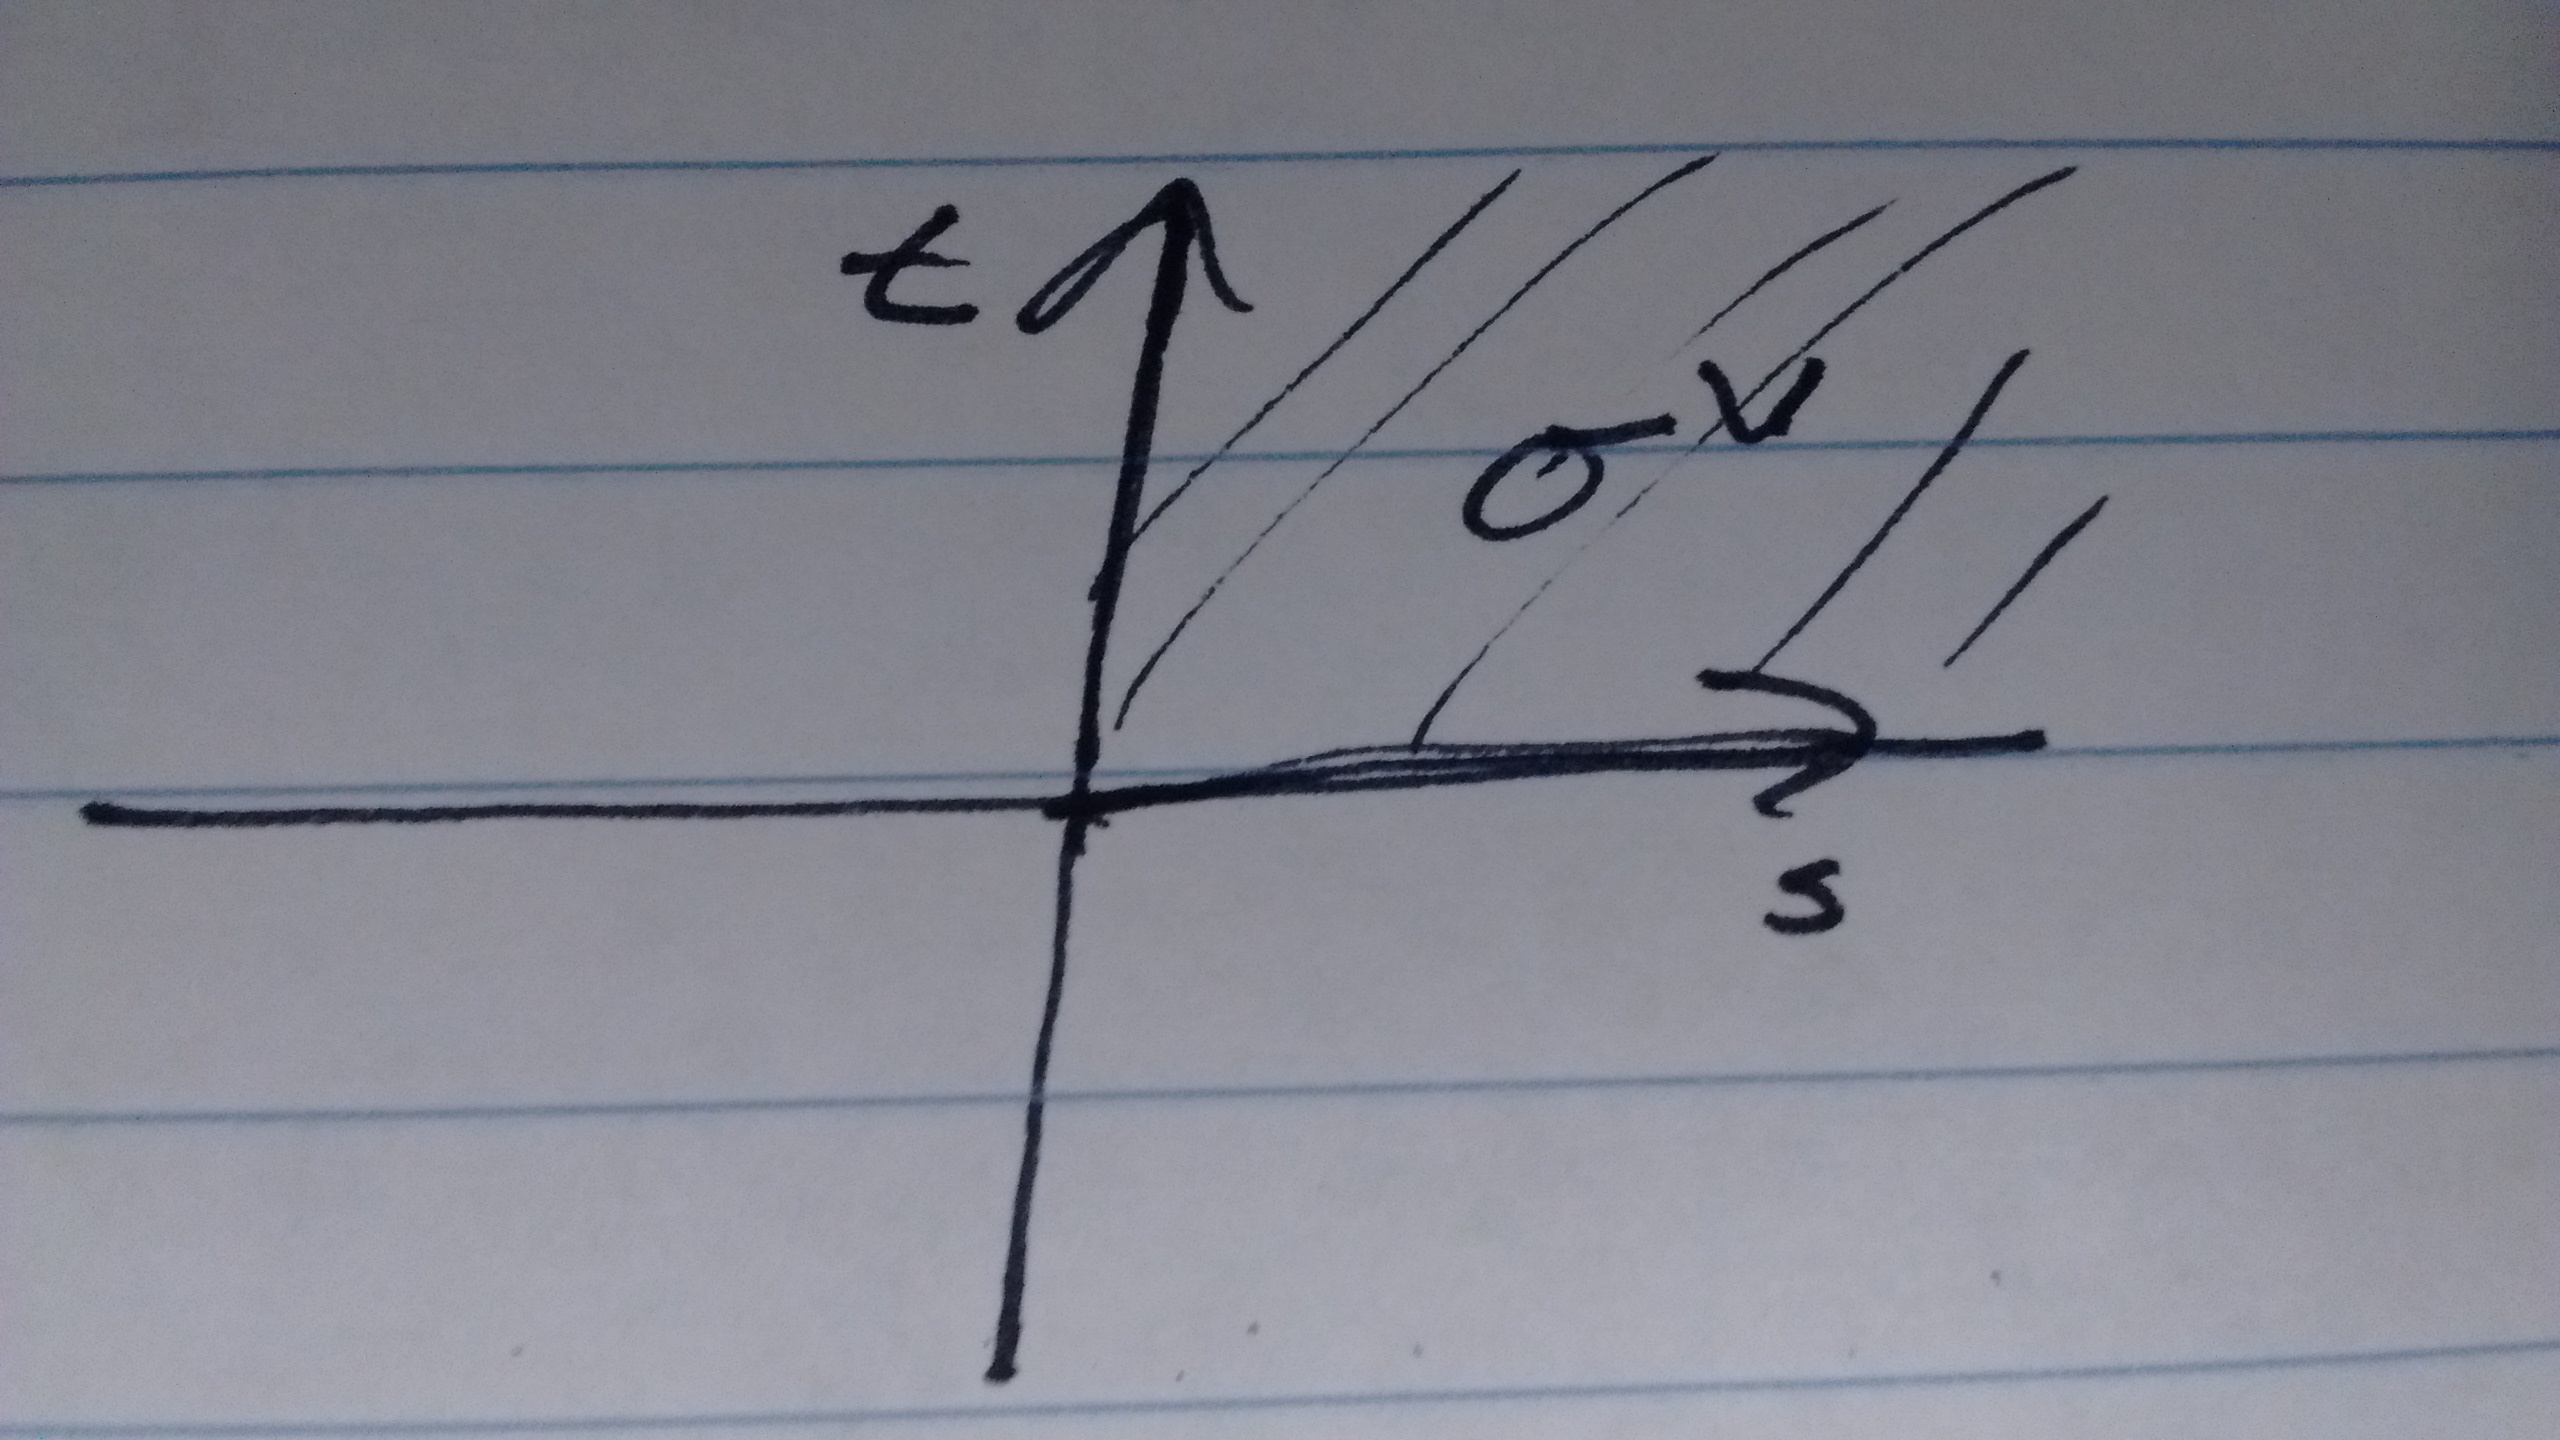 t
σ^∨
s